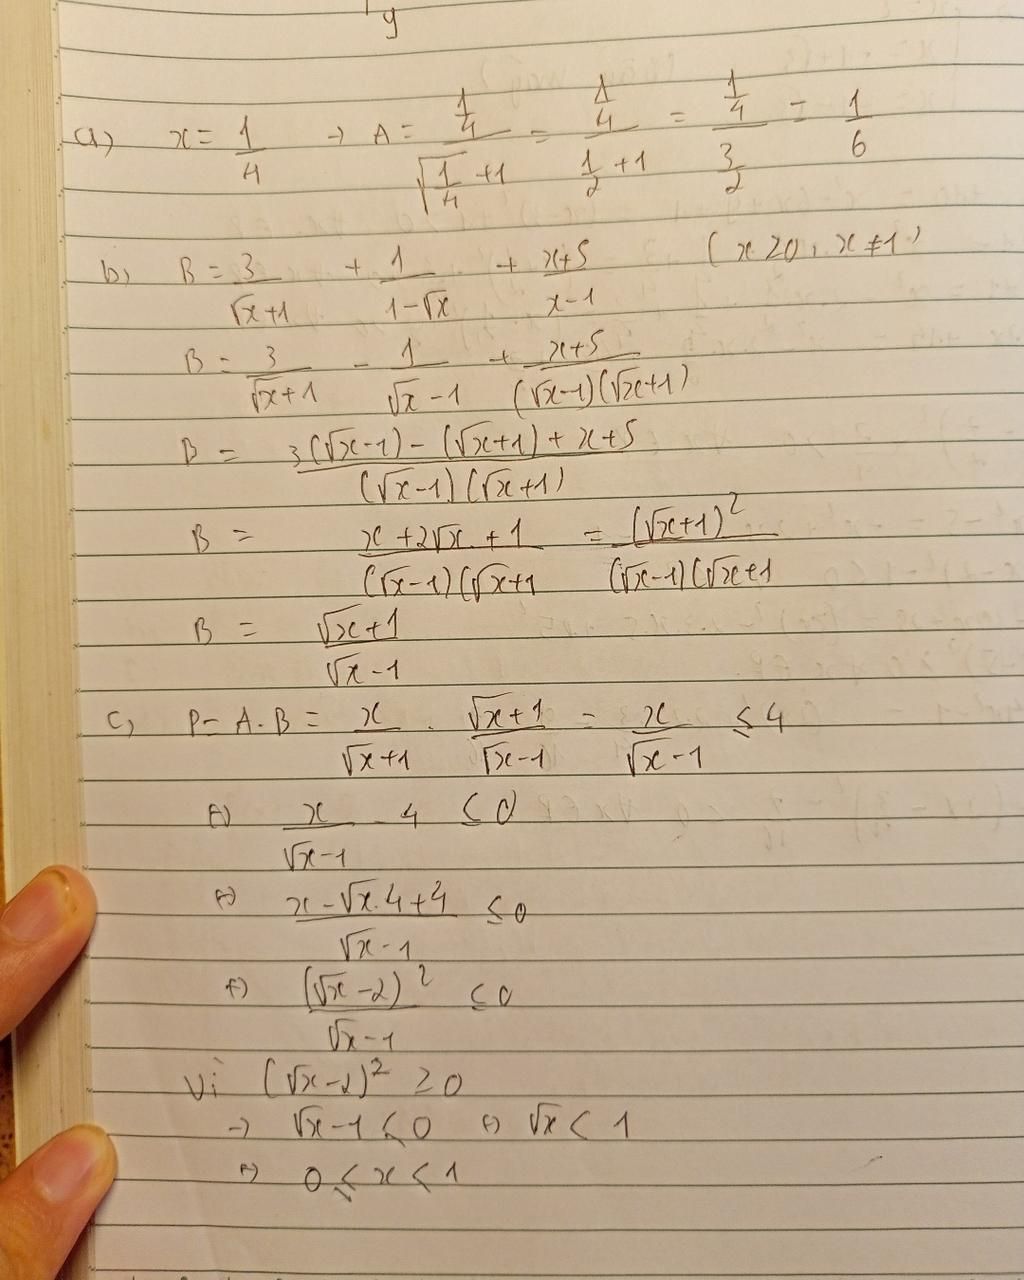 y
a) x = 1/4 → A = (1/4)/(√(1/4) + 1) = (1/4)/(1/2 + 1) = (1/4)/(3/2) = 1/6
b) B = 3/(√x+1) + 1/(1-√x) + (x+5)/(x-1) (x ≥ 0, x ≠ 1)
B = 3/(√x+1) - 1/(√x-1) + (x+5)/((√x-1)(√x+1))
B = (3(√x-1) - (√x+1) + x+5)/((√x-1)(√x+1))
B = (x+2√x+1)/((√x-1)(√x+1 = (√x+1)²/((√x-1)(√x+1
B = (√x+1)/(√x-1)
c, P = A.B = x/(√x+1) . (√x+1)/(√x-1) = x/(√x-1) ≤ 4
⇔ x/(√x-1) - 4 ≤ 0
⇔ (x-√x.4+4)/(√x-1) ≤ 0
⇔ (√x-2)²/(√x-1) ≤ 0
Vì (√x-2)² ≥ 0
→ √x-1 < 0 ⇔ √x < 1
⇔ 0 ≤ x < 1